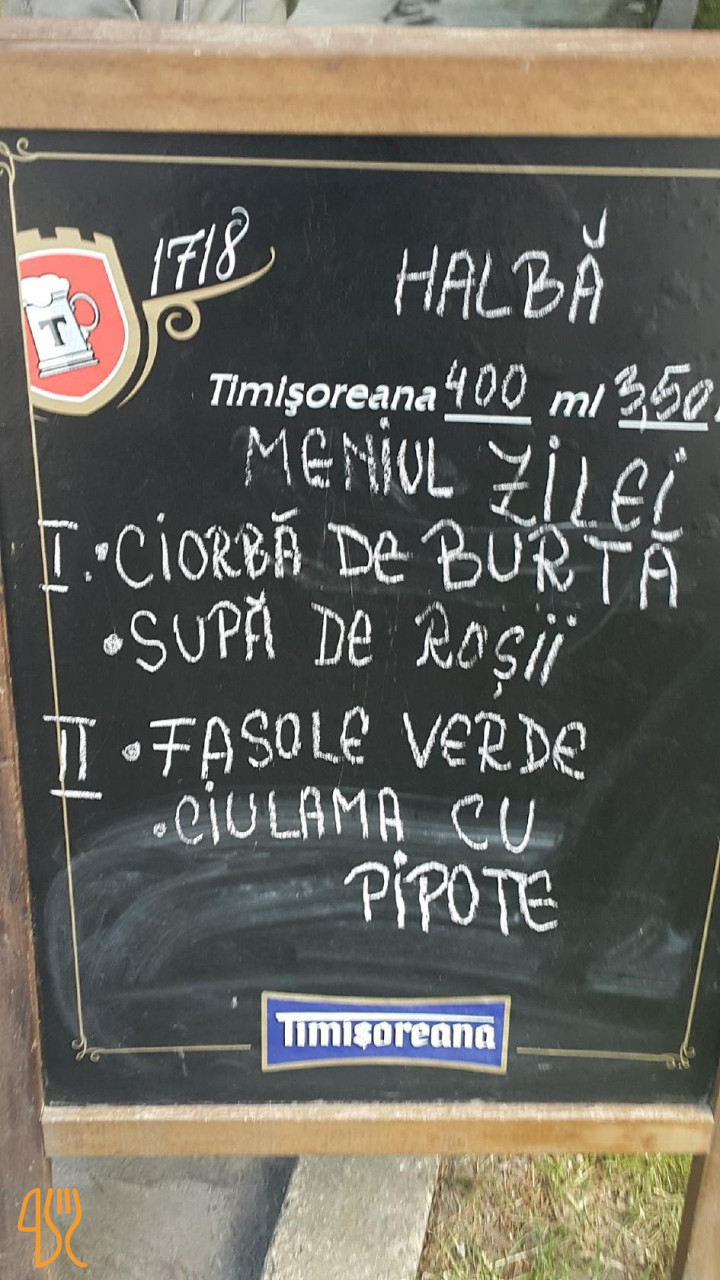 1718
HALBĂ
T
Timişoreana 400 ml 3,50
MENiUL ZiLEi
I. • CiORBĂ De BURTA
• SUPĂ De ROŞii
II • FASOLE VERDE
• CiULAMA CU
PiPOTE
Timişoreana